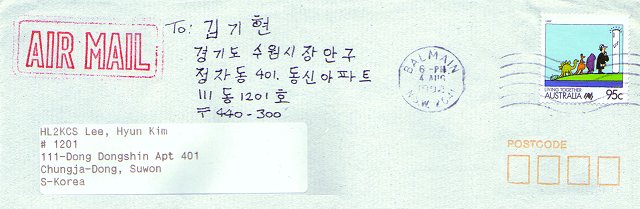 AIR MAIL
To: 김기현
경기도 수원시 장안구
정자동 401. 동신아파트
111동 1201호
〒440-300
HL2KCS Lee, Hyun Kim
# 1201
111-Dong Dongshin Apt 401
Chungja-Dong, Suwon
S-Korea
BALMAIN
6-PM
4 AUG
N.S.W. 2041
LIVING TOGETHER
AUSTRALIA 95c
POSTCODE